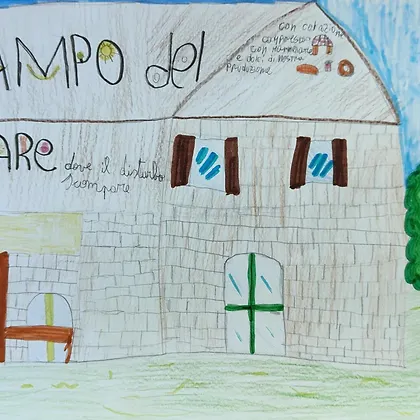 AMPO del
ARE dove il disturbo
scompare
con colazione
compresa
e dolci di nostra
produzione